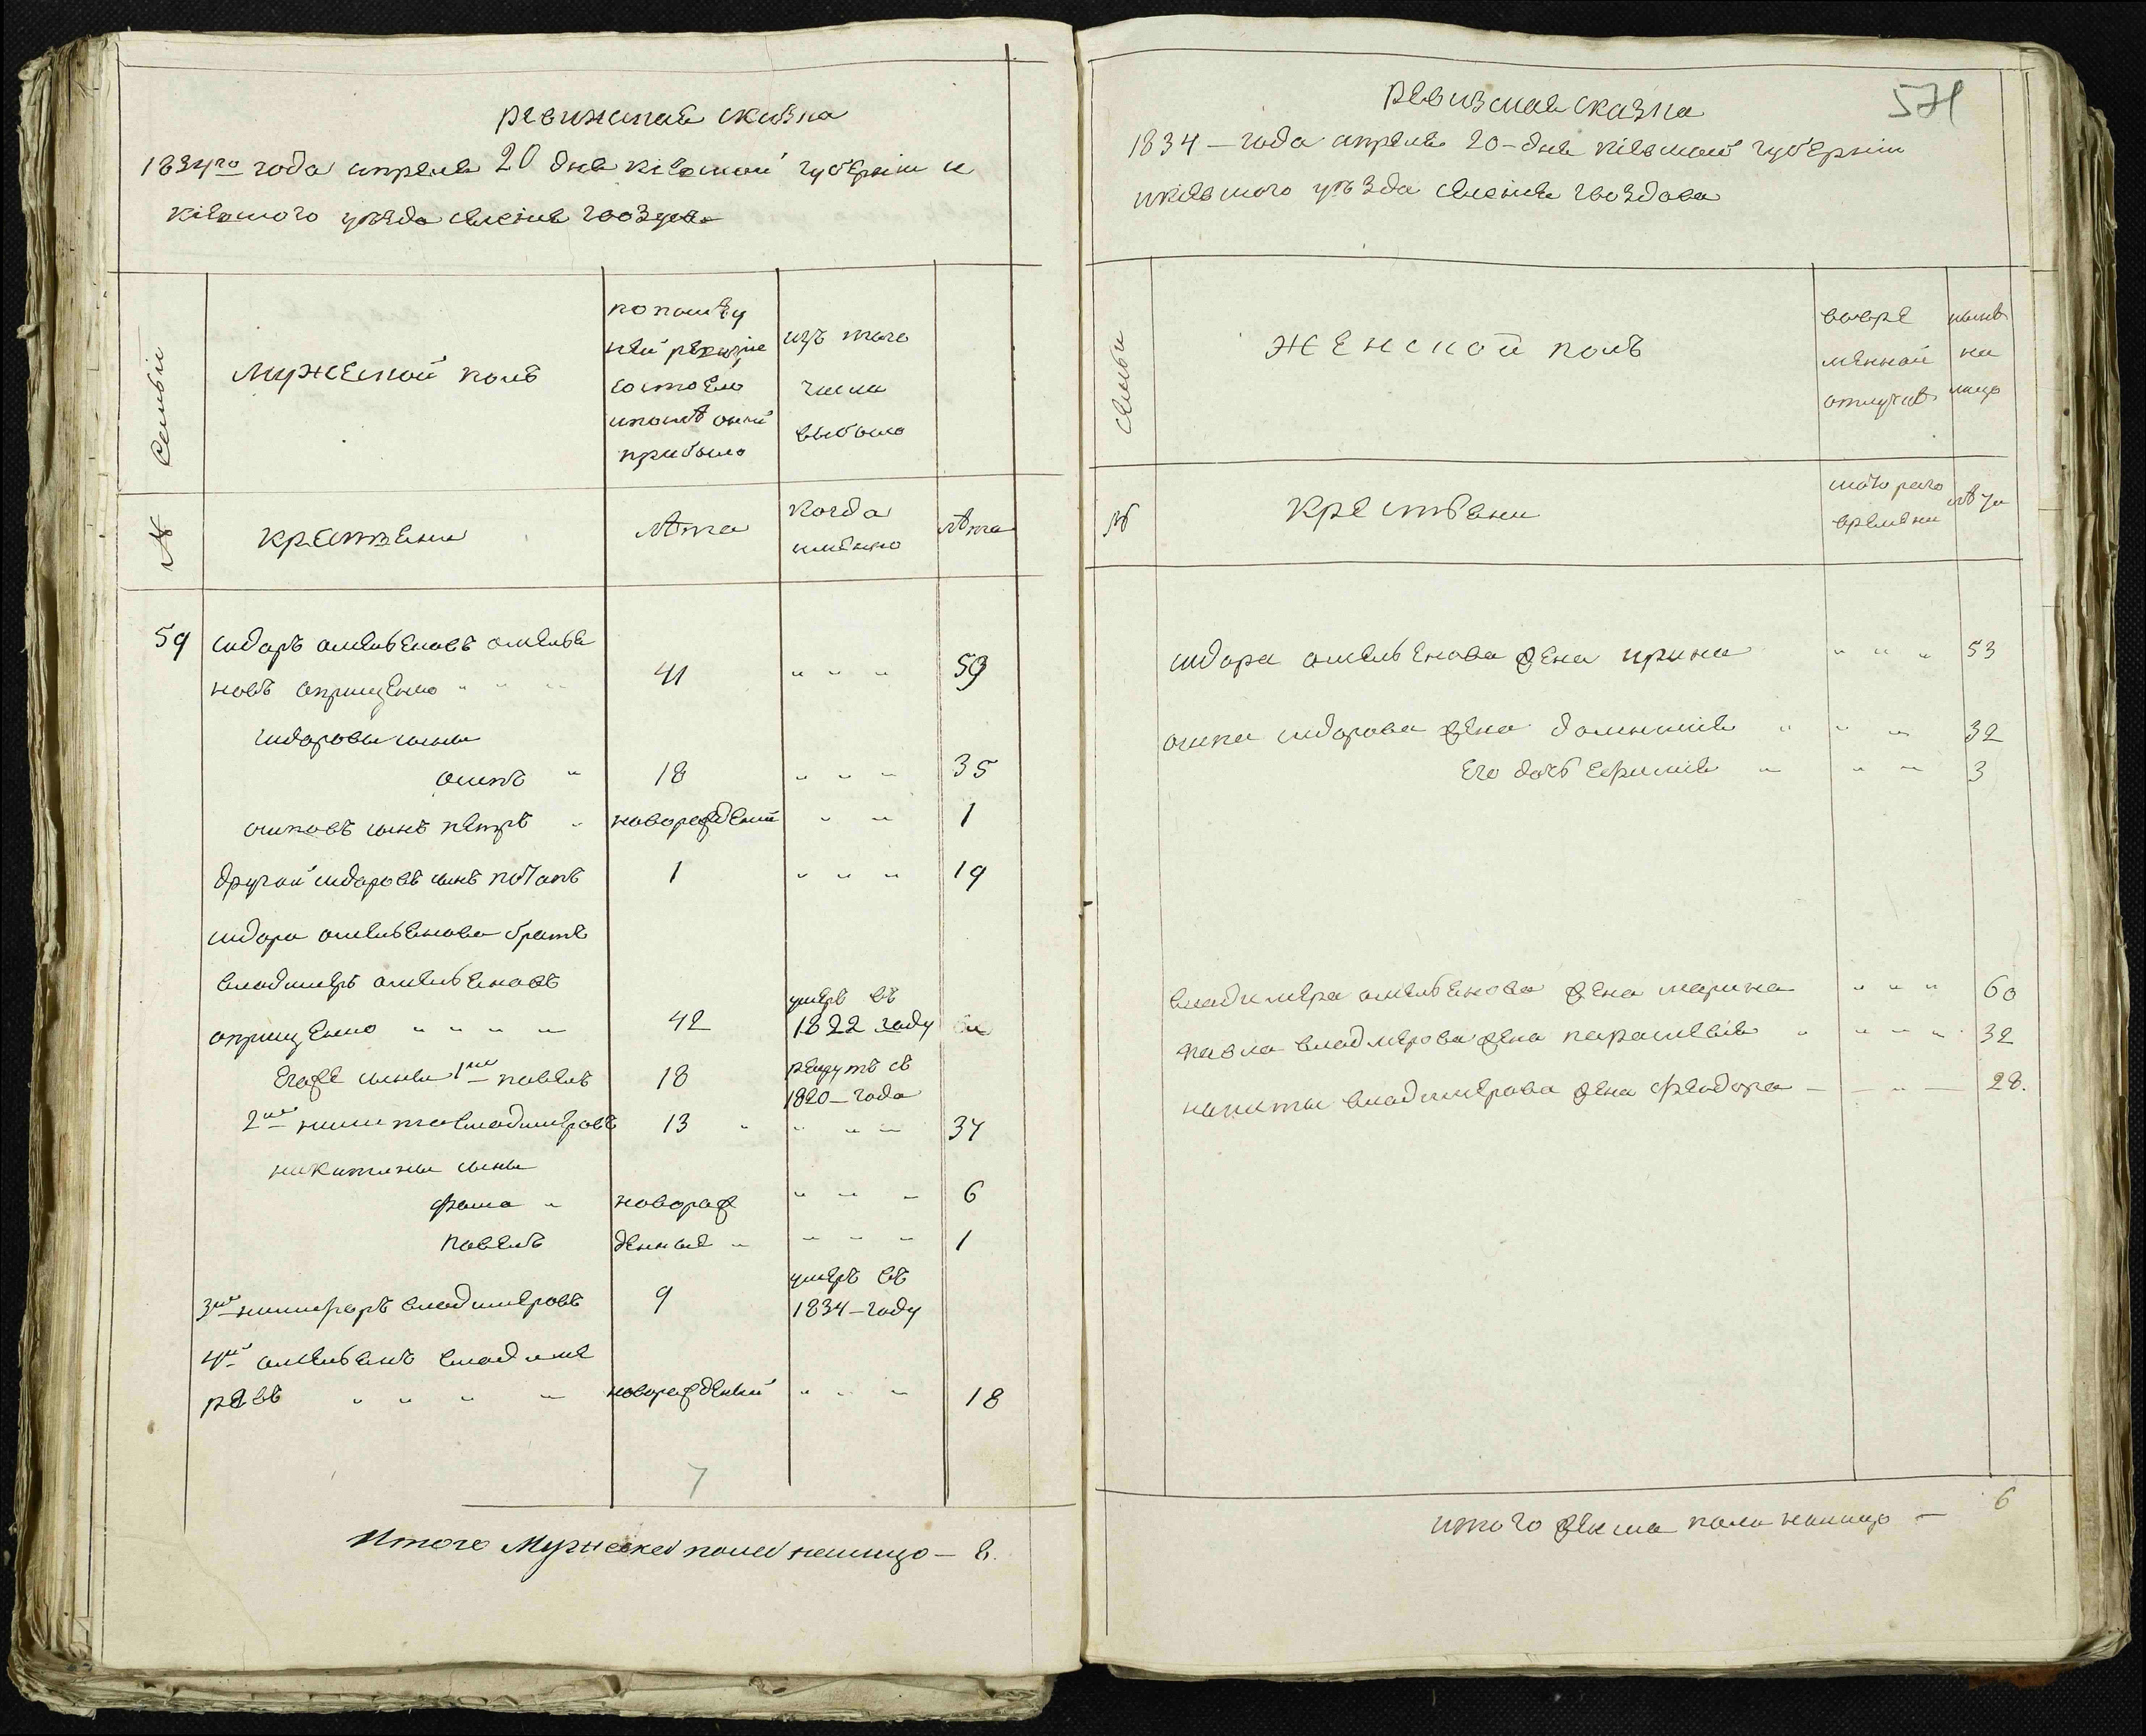 ревижская сказка
1834го года апреля 20 дня кіевской губерніи и
кіевского уезда селенія гвоздова
Семьи
мужеской полъ
по последу
ней ревизіе
состояло
и после оной
прибыло
изъ того
числа
выбыло
№
крестяни
лѣта
когда
имянно
лѣта
59 сидоръ омельяновъ омелья
новъ онрищенко " " " 41 " " " 59
сидоровы сыны
осипъ " 18 " " " 35
осиповъ сынъ петръ " новорожденый " " 1
другой сидоровъ сынъ потапъ 1 " " " 19
сидора омельянова братъ
владимеръ омельяновъ
онрищенко " " " " 42 умеръ въ 1822 году
егоже сыны 1й павелъ 18 рекрутъ съ 1820 – года
2й никита владимеровъ 13 " " " " 34
никитины сыны
фома " новорож " " " 6
павелъ денные " " " " 1
3й никифоръ владимеровъ 9 умеръ въ 1834 – году
4й омельянъ владиме
ровъ " " " " новорожденый " " " 18
7
Итого Мужеска пола налицо – 8.
571
ревизская сказка
1834 – года апреля 20 – дня кіевской губерніи
и кіевского уезда селенія гвоздова
семьи
женской полъ
во вре
менной
отлучке
ныне
на
лицо
№
крестьяни
съ которого
времени
лѣта
сидора омельянова жена ирина " " " 53
осипа сидорова жена домникія " " " 32
его дочь ефимия " " " 3
владимера омельянова жена марина " " " 60
павла владмерова жена параскевія " " " " 32
никиты владимерова жена феодора – – " – 28.
итого женска пола налицо – 6